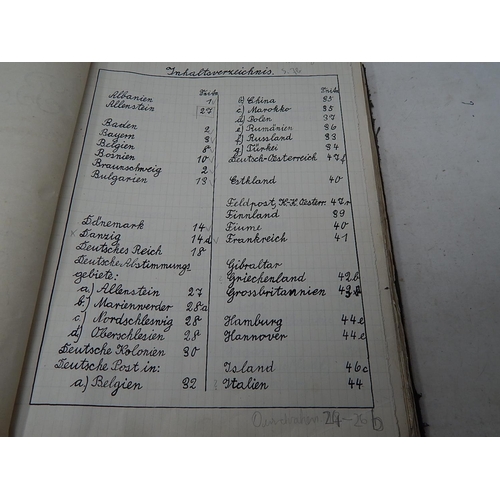 Inhaltsverzeichnis.
Seite
Albanien 1
Allenstein 27
Baden 2
Bayern 3
Belgien 8
Bosnien 10
Braunschweig 2
Bulgarien 13
Dänemark 14
Danzig 14d
Deutsches Reich 18
Deutsche Abstimmungs
gebiete:
a) Allenstein 27
b) Marienwerder 28a
c) Nordschleswig 28
d) Oberschlesien 28
Deutsche Kolonien 30
Deutsche Post in:
a) Belgien 32
Seite
b) China 35
c) Marokko 35
d) Polen 37
e) Rumänien 36
f) Russland 33
g) Türkei 34
Deutsch-Oesterreich 47f
Estland 40
Feldpost, K.K. Oesterr. 47r
Finnland 39
Fiume 40
Frankreich 41
Gibraltar
Griechenland 42b
Grossbritannien
Hamburg 44e
Hannover 44e
Island 46c
Italien 44
24-26